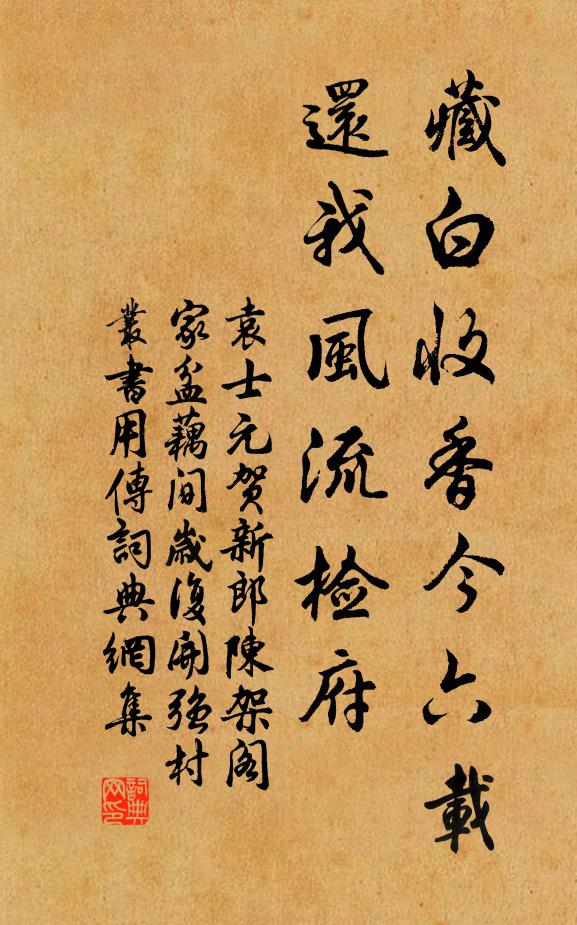 藏白收香今六載
還我風流檢府
袁士元賀新郎陳架阁
家盆藕间歲復開強村
叢書用傳詞典網集
詞典网印